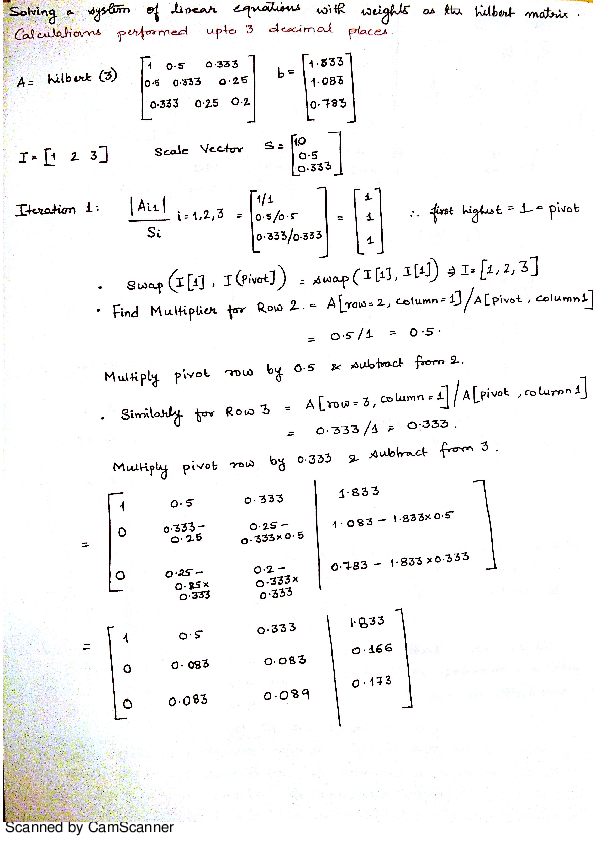 Solving a system of linear equations with weights as the hilbert matrix.
Calculations performed upto 3 decimal places.
A = hilbert (3) [1 0.5 0.333
0.5 0.333 0.25
0.333 0.25 0.2] b = [1.833
1.083
0.783]
I = [1 2 3] Scale Vector S = [10
0.5
0.333]
Iteration 1: |Ai1| / Si i=1,2,3 = [1/1
0.5/0.5
0.333/0.333] = [1
1
1] ∴ first highest = 1 = pivot
• Swap (I[1], I(Pivot]) = swap (I[1], I[1]) ⇒ I = [1, 2, 3]
• Find Multiplier for Row 2 = A[row=2, column=1] / A[pivot, column1]
= 0.5/1 = 0.5.
Multiply pivot row by 0.5 & subtract from 2.
• Similarly for Row 3 = A[row=3, column=1] / A[pivot, column1]
= 0.333/1 = 0.333.
Multiply pivot row by 0.333 & subtract from 3.
= [1 0.5 0.333 | 1.833
0 0.333- 0.25- | 1.083 - 1.833x0.5
0.25 0.333x0.5
0 0.25- 0.2- | 0.783 - 1.833x0.333]
0.333x
0.333 0.333
= [1 0.5 0.333 | 1.833
0 0.083 0.083 | 0.166
0 0.083 0.089 | 0.173]
Scanned by CamScanner